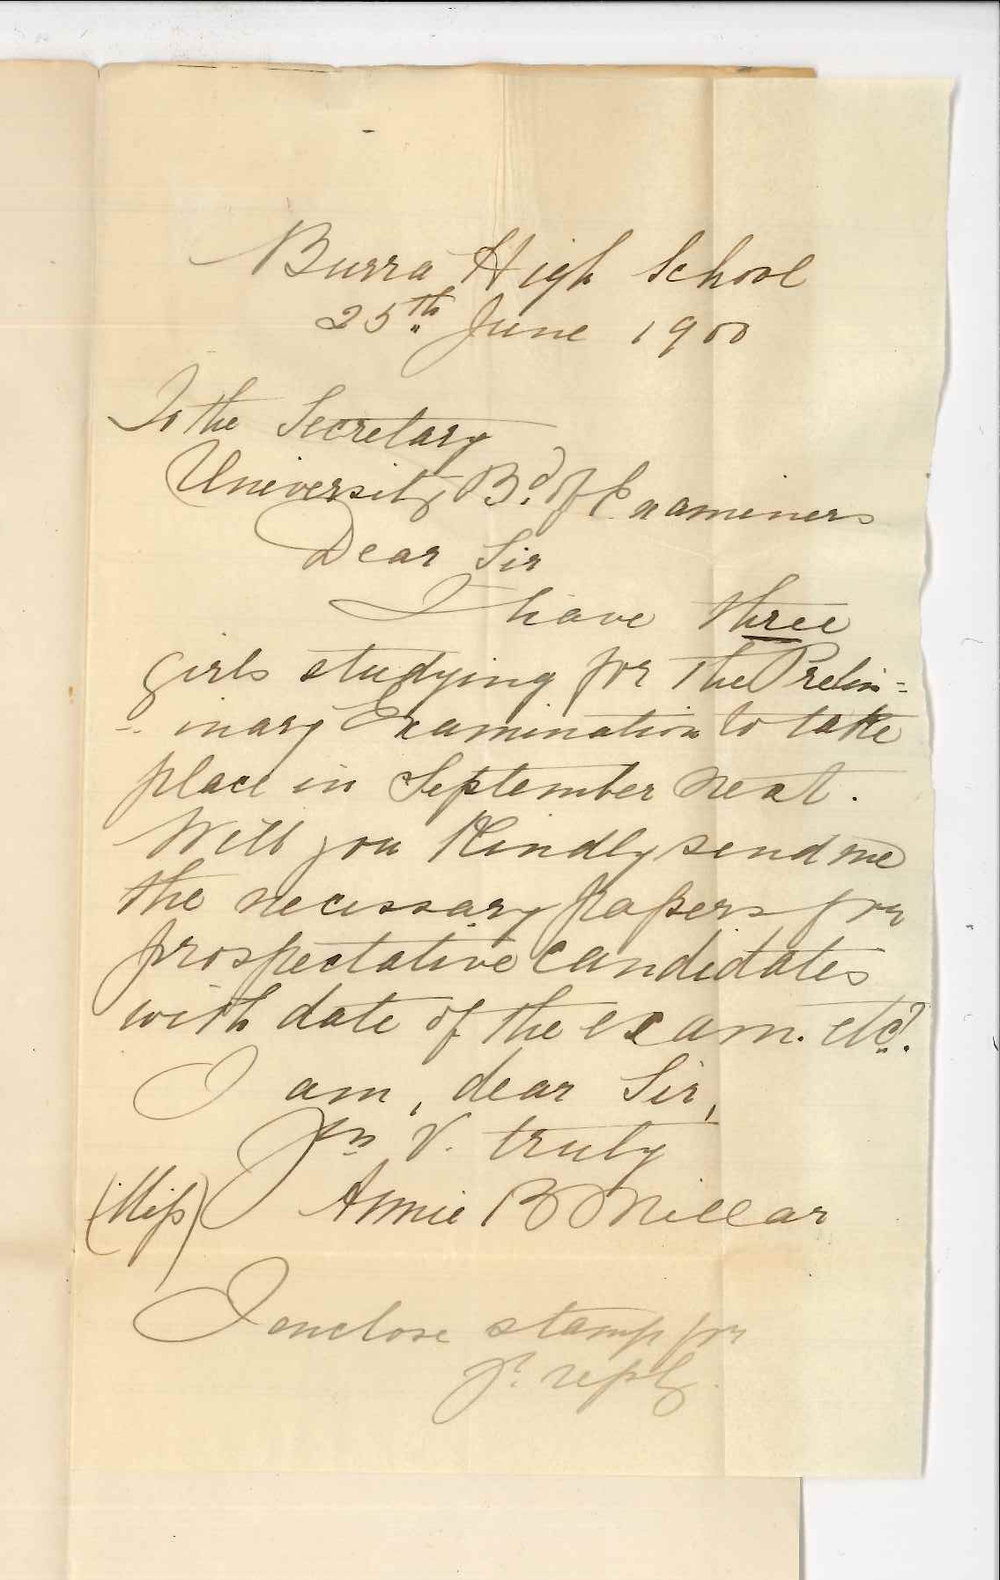 Burra High School
25th June 1900
To the Secretary
University Bd. of Examiners
Dear Sir
I have three
girls studying for the Prelim=
=inary Examination to take
place in September next.
Will you kindly send me
the necessary papers for
prospectative candidates
with date of the exam. etc?.
I am, dear Sir,
Yrs V. truly
(Miss) Annie B Millar
I enclose stamp for
yr. reply.